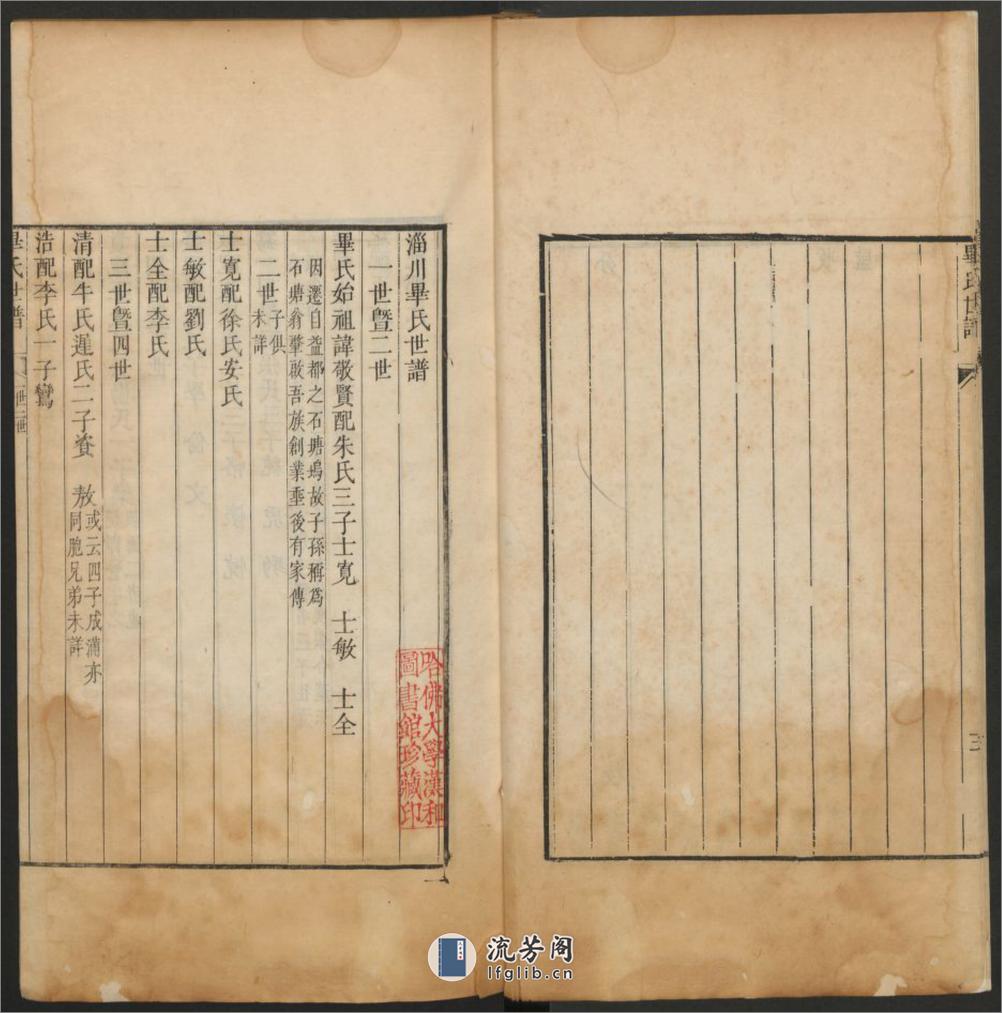 畢氏世譜
三
淄川畢氏世譜
一世暨二世
畢氏始祖諱敬賢配朱氏三子士寬　士敏　士全
因遷自益都之石塘塢故子孫稱為
石塘翁肇啟吾族創業垂後有家傳
二世子俱
未詳
士寬配徐氏安氏
士敏配劉氏
士全配李氏
三世暨四世
清配牛氏遲氏二子資　敖或云四子成浦亦
同胞兄弟未詳
浩配李氏一子鸞
畢氏世譜
一世二世
一
哈佛大學漢和
圖書館珍藏印
流芳阁
lfglib.cn